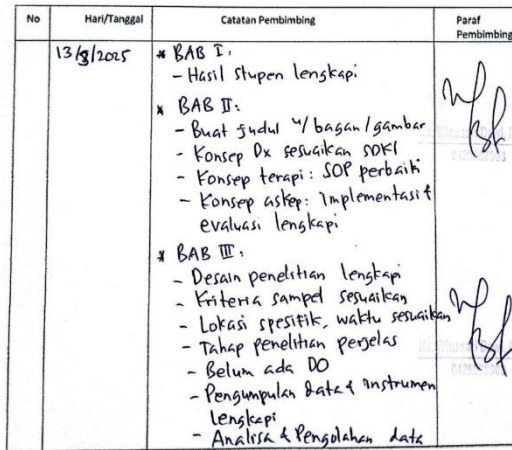 No Hari/Tanggal Catatan Pembimbing Paraf
Pembimbing
13/8/2025 * BAB I:
- Hasil stupen lengkapi
* BAB II:
- Buat judul u/ bagan/gambar
- Konsep Dx sesuaikan SDKI
- Konsep terapi: SOP perbaiki
- Konsep askep: Implementasi &
evaluasi lengkapi
* BAB III:
- Desain penelitian lengkapi
- Kriteria sampel sesuaikan
- Lokasi spesifik, waktu sesuaikan
- Tahap penelitian perjelas
- Belum ada DO
- Pengumpulan data & instrumen
lengkapi
- Analisa & Pengolahan data